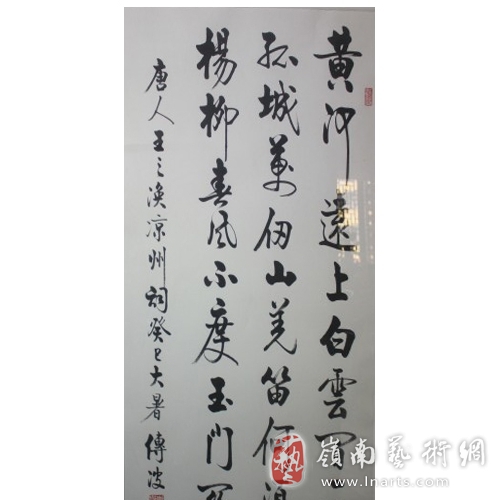 黄河遠上白雲间
孤城萬仞山羌笛何須
楊柳春风不度玉門関
唐人王之渙凉州詞癸巳大暑傅波
藝
嶺南藝術網
www.lnarts.com